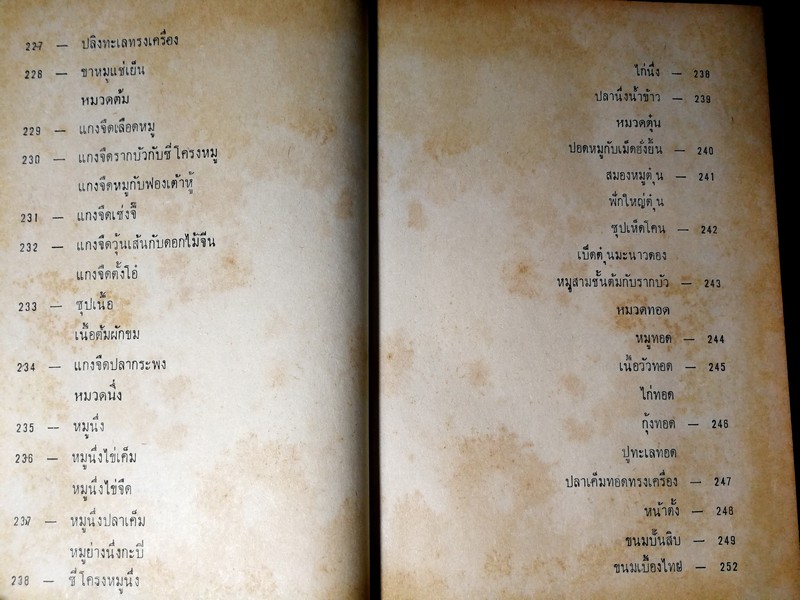 227 — ปลิงทะเลทรงเครื่อง
228 — ขาหมูแช่เย็น
หมวดต้ม
229 — แกงจืดเลือดหมู
230 — แกงจืดรากบัวกับซี่โครงหมู
แกงจืดหมูกับฟองเต้าหู้
231 — แกงจืดเซ่งจี๊
232 — แกงจืดวุ้นเส้นกับดอกไม้จีน
แกงจืดตั้งโอ๋
233 — ซุปเนื้อ
เนื้อต้มผักชม
234 — แกงจืดปลากระพง
หมวดนึ่ง
235 — หมูนึ่ง
236 — หมูนึ่งไข่เค็ม
หมูนึ่งไข่จืด
237 — หมูนึ่งปลาเค็ม
หมูย่างนึ่งกะปิ
238 — ซี่โครงหมูนึ่ง
ไก่นึ่ง — 238
ปลานึ่งน้ำข้าว — 239
หมวดตุ๋น
ปอดหมูกับเม็ดฮั่งยิ้น — 240
สมองหมูตุ๋น — 241
ฟักใหญ่ตุ๋น
ซุปเห็ดโคน — 242
เป็ดตุ๋นมะนาวดอง
หมูสามชั้นต้มกับรากบัว — 243
หมวดทอด
หมูทอด — 244
เนื้อวัวทอด — 245
ไก่ทอด
กุ้งทอด — 246
ปูทะเลทอด
ปลาเค็มทอดทรงเครื่อง — 247
หน้าตั้ง — 248
ขนมปั้นสิบ — 249
ขนมเบื้องไทย — 252